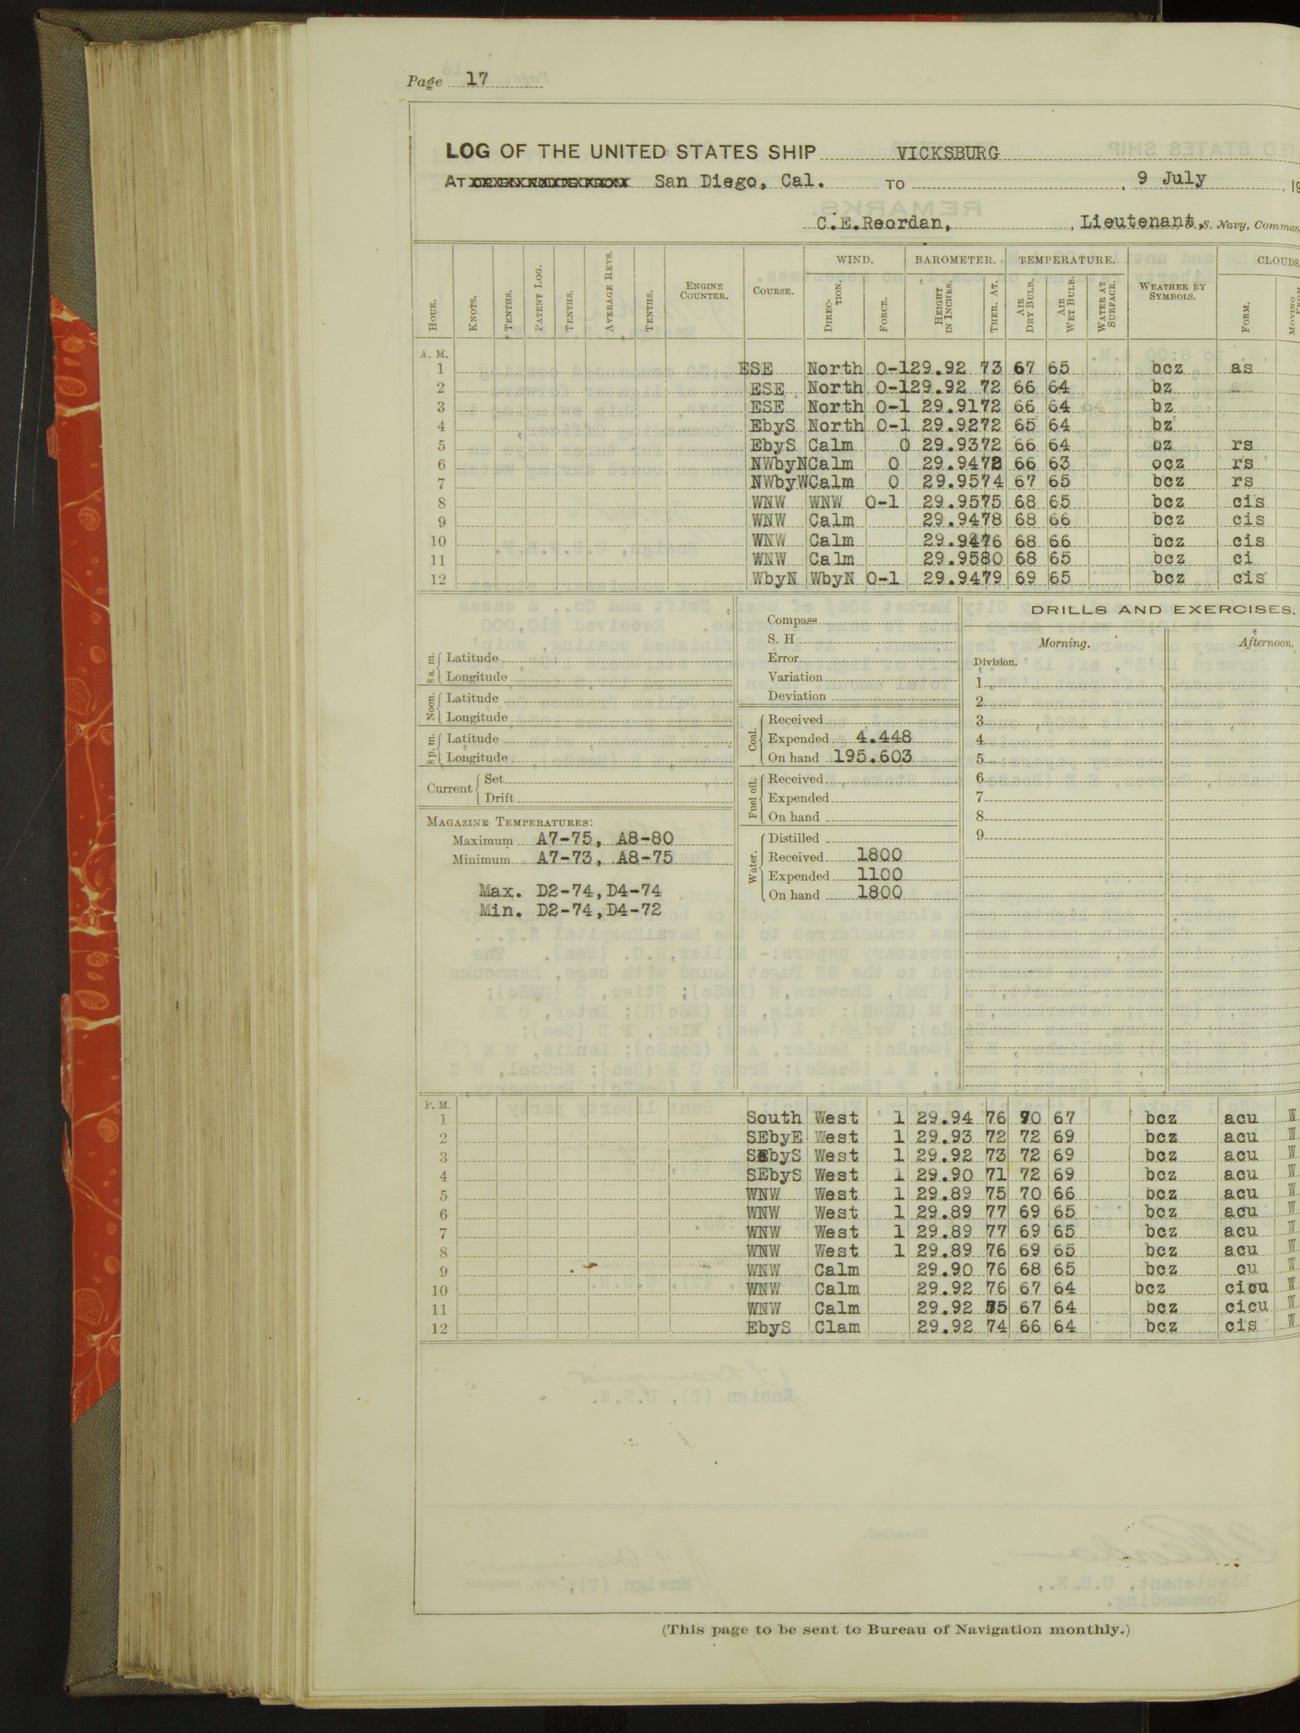 Page 17
LOG OF THE UNITED STATES SHIP VICKSBURG
AT San Diego, Cal. TO , 9 July , 19
C.E.Reordan, , Lieutenant, S. Navy, Comman
HOUR. KNOTS. TENTHS. PATENT LOG. TENTHS. AVERAGE REVS. TENTHS. ENGINE COUNTER. COURSE. WIND. DIRECTION. FORCE. BAROMETER. HEIGHT IN INCHES. THER. AT. TEMPERATURE. AIR DRY BULB. AIR WET BULB. WATER AT SURFACE. WEATHER BY SYMBOLS. CLOUDS. FORM. MOVING FROM
A. M.
1 ESE North 0-1 29.92 73 67 65 bcz as
2 ESE North 0-1 29.92 72 66 64 bz
3 ESE North 0-1 29.91 72 66 64 bz
4 EbyS North 0-1 29.92 72 65 64 bz
5 EbyS Calm 0 29.93 72 66 64 oz rs
6 NWbyN Calm 0 29.94 72 66 63 ocz rs
7 NWbyW Calm 0 29.95 74 67 65 bcz rs
8 WNW WNW 0-1 29.95 75 68 65 bcz cis
9 WNW Calm 29.94 78 68 66 bcz cis
10 WNW Calm 29.94 76 68 66 bcz cis
11 WNW Calm 29.95 80 68 65 bcz ci
12 WbyN WbyN 0-1 29.94 79 69 65 bcz cis
8 a. m. Latitude
Longitude
Noon. Latitude
Longitude
8 p. m. Latitude
Longitude
Current Set
Drift
MAGAZINE TEMPERATURES:
Maximum A7-75, A8-80
Minimum A7-73, A8-75
Max. D2-74,D4-74
Min. D2-74,D4-72
Compass
S. H
Error
Variation
Deviation
Coal. Received
Expended 4.448
On hand 195.603
Fuel oil. Received
Expended
On hand
Water. Distilled
Received 1800
Expended 1100
On hand 1800
DRILLS AND EXERCISES.
Morning. Afternoon.
Division.
1
2
3
4
5
6
7
8
9
P. M.
1 South West 1 29.94 76 70 67 bcz acu W
2 SEbyE West 1 29.93 72 72 69 bcz acu W
3 SEbyS West 1 29.92 73 72 69 bcz acu W
4 SEbyS West 1 29.90 71 72 69 bcz acu W
5 WNW West 1 29.89 75 70 66 bcz acu W
6 WNW West 1 29.89 77 69 65 bcz acu W
7 WNW West 1 29.89 77 69 65 bcz acu W
8 WNW West 1 29.89 76 69 65 bcz acu W
9 WNW Calm 29.90 76 68 65 bcz cu W
10 WNW Calm 29.92 76 67 64 bcz cicu W
11 WNW Calm 29.92 75 67 64 bcz cicu W
12 EbyS Clam 29.92 74 66 64 bcz cis W
(This page to be sent to Bureau of Navigation monthly.)